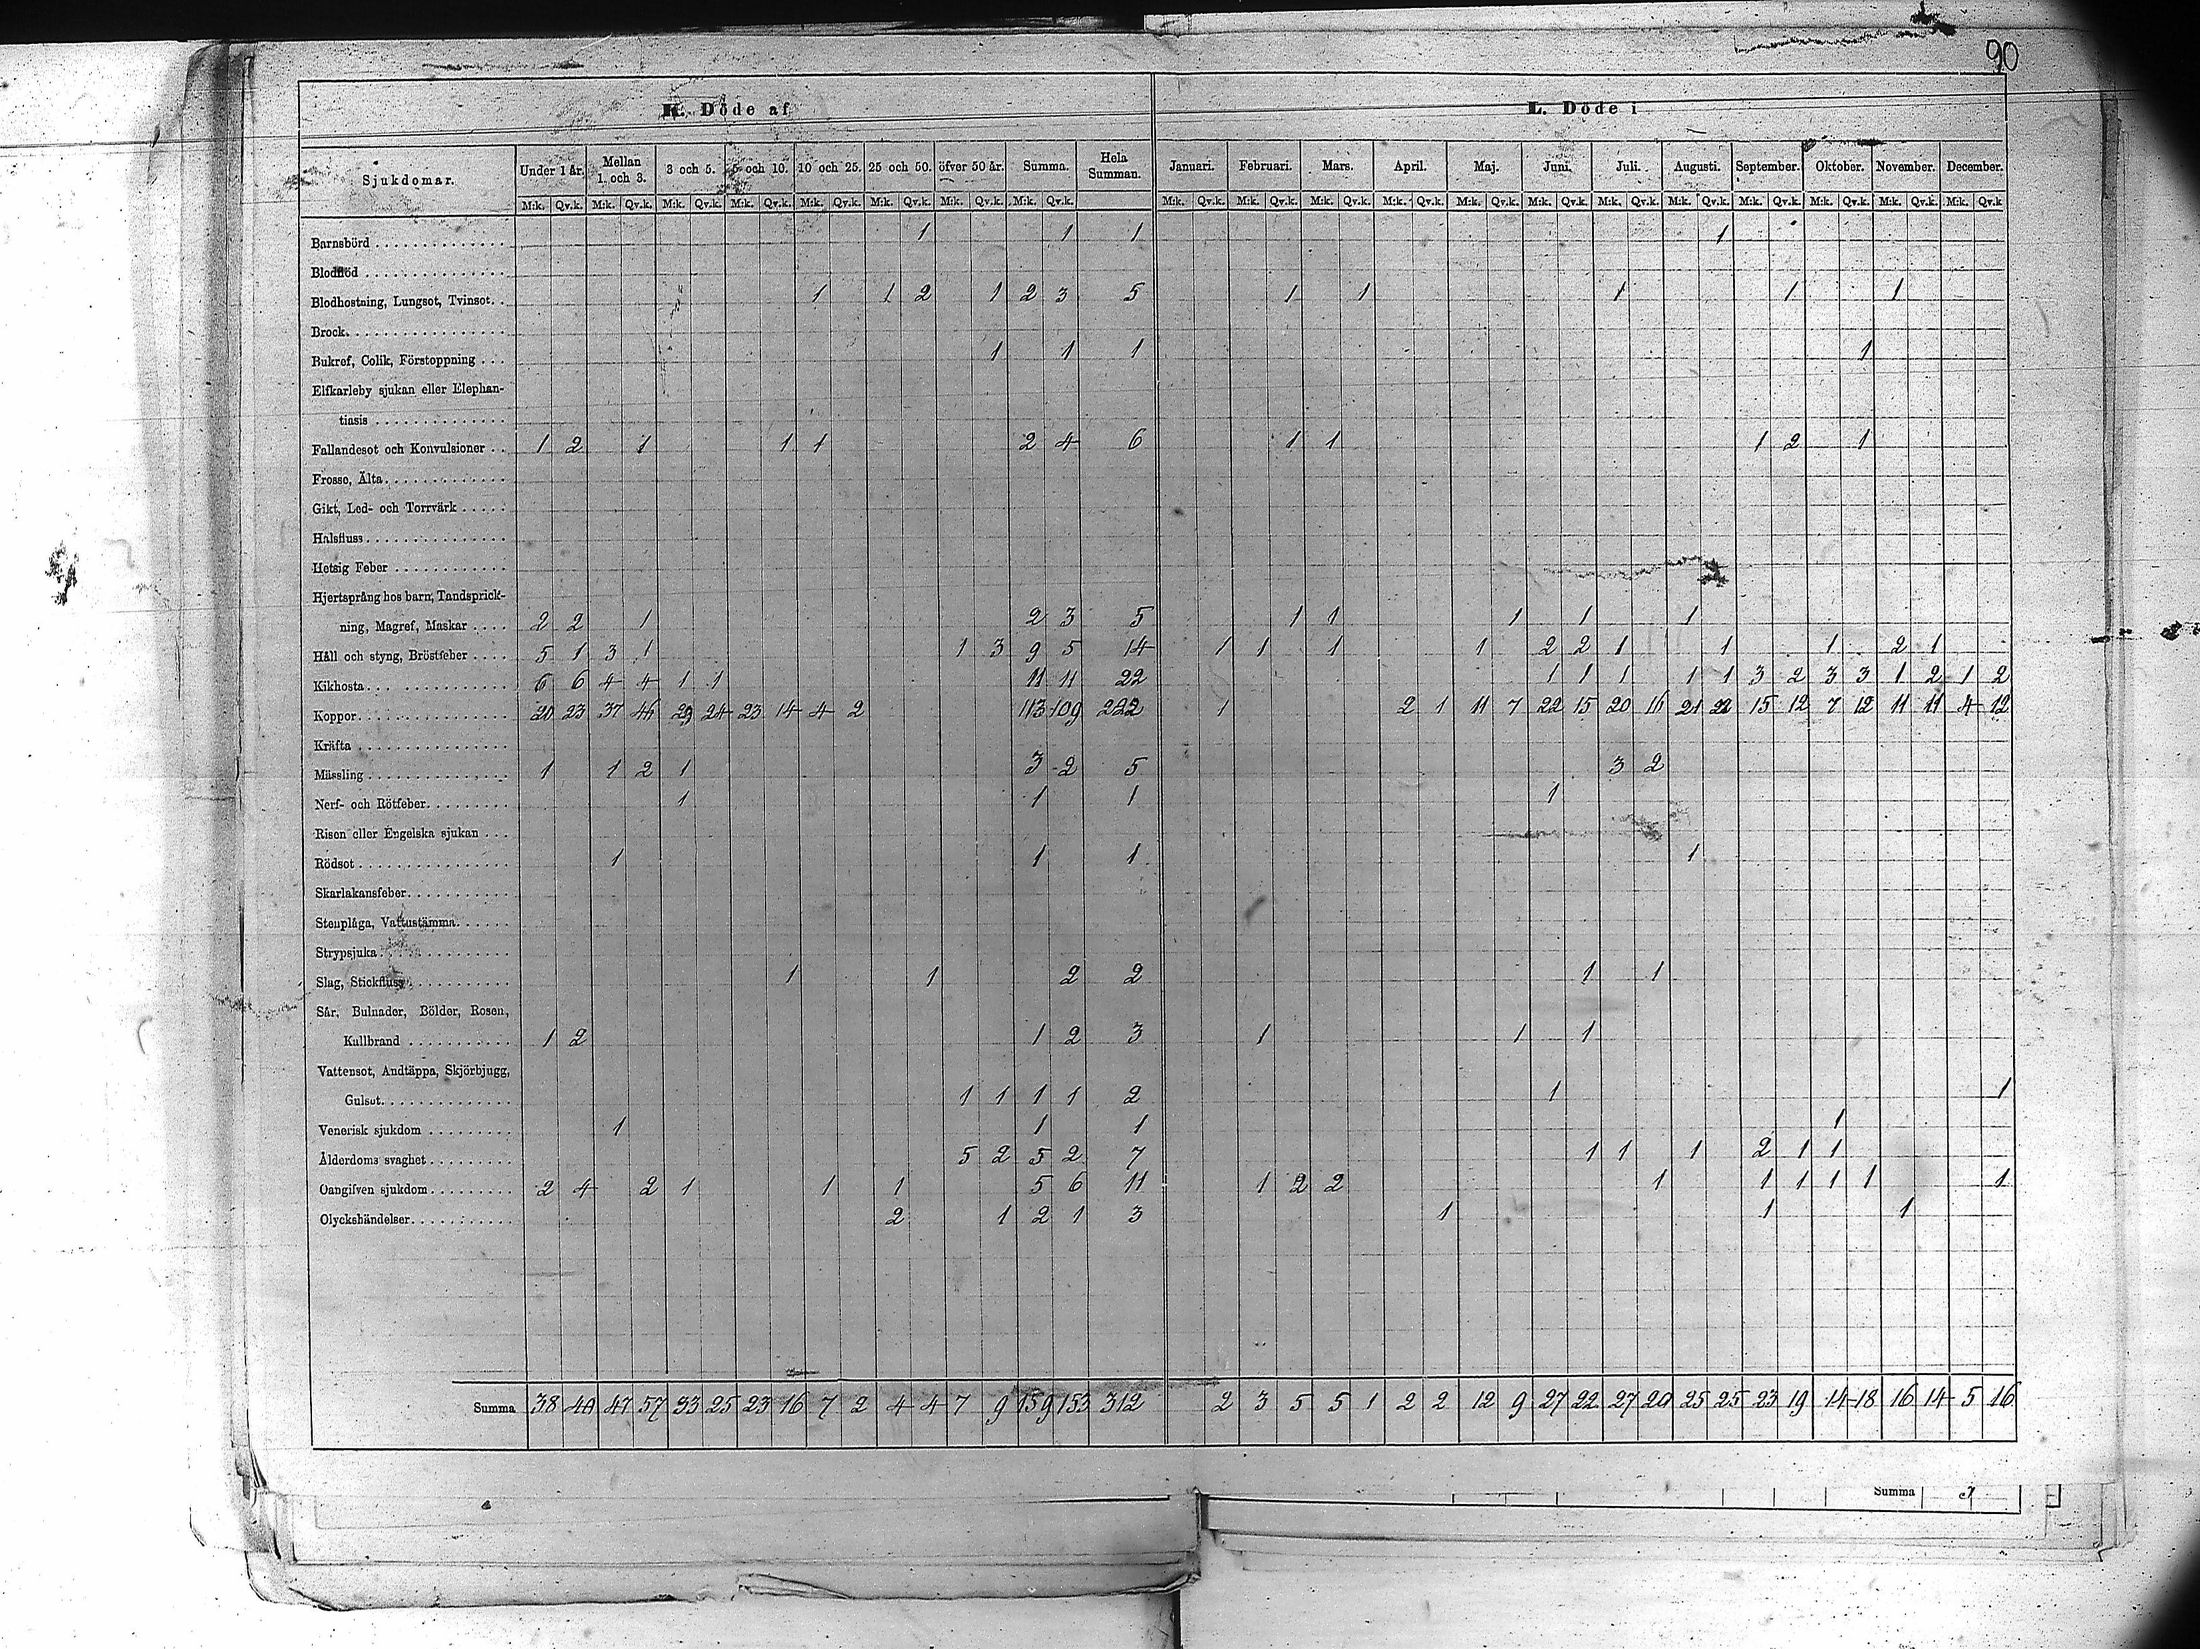 90
K. Döde af
L. Döde i
Sjukdomar. Under 1 år. Mellan 1. och 3. 3 och 5. 5 och 10. 10 och 25. 25 och 50. öfver 50 år. Summa. Hela Summan. Januari. Februari. Mars. April. Maj. Juni. Juli. Augusti. September. Oktober. November. December.
M:k. Qv.k. M:k. Qv.k. M:k. Qv.k. M:k. Qv.k. M:k. Qv.k. M:k. Qv.k. M:k. Qv.k. M:k. Qv.k. M:k. Qv.k. M:k. Qv.k. M:k. Qv.k. M:k. Qv.k. M:k. Qv.k. M:k. Qv.k. M:k. Qv.k. M:k. Qv.k. M:k. Qv.k. M:k. Qv.k. M:k. Qv.k. M:k. Qv.k
Barnsbörd 1 1 1 1
Blodflöd
Blodhostning, Lungsot, Tvinsot. 1 1 2 1 2 3 5 1 1 1 1 1
Brock
Bukref, Colik, Förstoppning 1 1 1 1
Elfkarleby sjukan eller Elephan-
tiasis
Fallandesot och Konvulsioner 1 2 1 1 1 2 4 6 1 1 1 2 1
Frosso, Älta
Gikt, Led- och Torrvärk
Halsfluss
Hetsig Feber
Hjertsprång hos barn, Tandsprick-
ning, Magref, Maskar 2 2 1 2 3 5 1 1 1 1 1
Håll och styng, Bröstfeber 5 1 3 1 1 3 9 5 14 1 1 1 1 2 2 1 1 1 2 1
Kikhosta 6 6 4 4 1 1 11 11 22 1 1 1 1 1 3 2 3 3 1 2 1 2
Koppor 20 23 37 46 29 24 23 14 4 2 113 109 222 1 2 1 11 7 22 15 20 16 21 22 15 12 7 12 11 11 4 12
Kräfta
Mässling 1 1 2 1 3 2 5 3 2
Nerf- och Rötfeber 1 1 1 1
Risen eller Engelska sjukan
Rödsot 1 1 1 1
Skarlakansfeber
Stenplåga, Vattustämma
Strypsjuka
Slag, Stickfluss 1 1 2 2 1 1
Sår, Bulnader, Bölder, Rosen,
Kallbrand 1 2 1 2 3 1 1 1
Vattensot, Andtäppa, Skjörbjugg,
Gulsot 1 1 1 1 2 1 1
Venerisk sjukdom 1 1 1 1
Ålderdoms svaghet 5 2 5 2 7 1 1 1 2 1 1
Oangifven sjukdom 2 4 2 1 1 1 5 6 11 1 2 2 1 1 1 1 1 1
Olyckshändelser 2 1 2 1 3 1 1 1
Summa 38 40 47 57 33 25 23 16 7 2 4 4 7 9 159 153 312 2 3 5 5 1 2 2 12 9 27 22 27 20 25 25 23 19 14 18 16 14 5 16
Summa